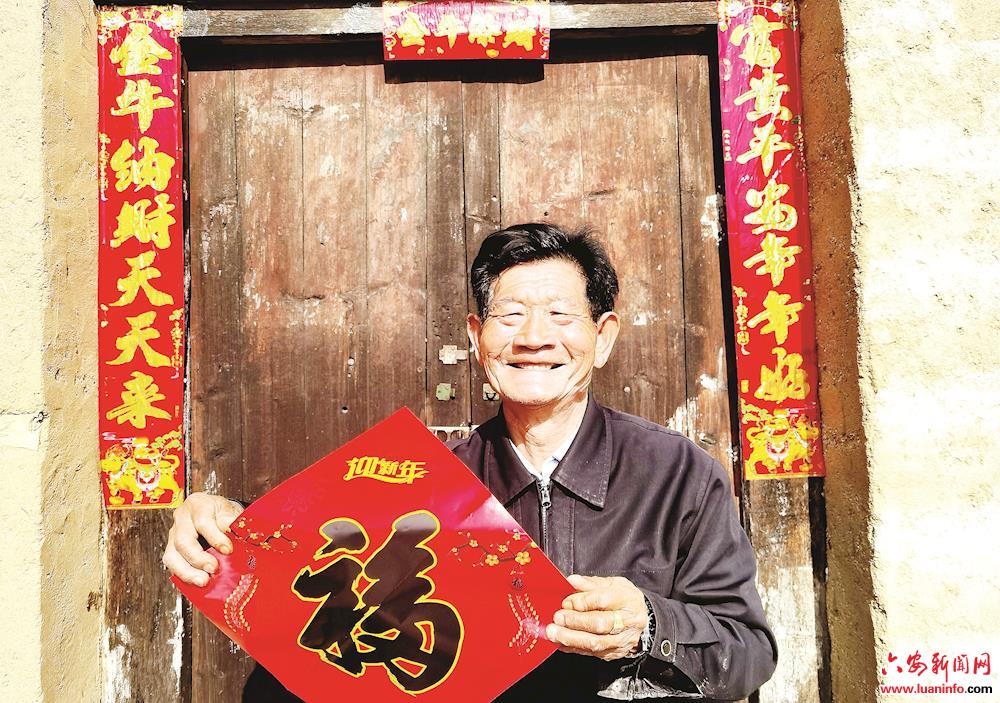 金牛 财
富贵平安年年好
金牛纳财天天来
迎新年
福
六安新闻网
www.luaninfo.com